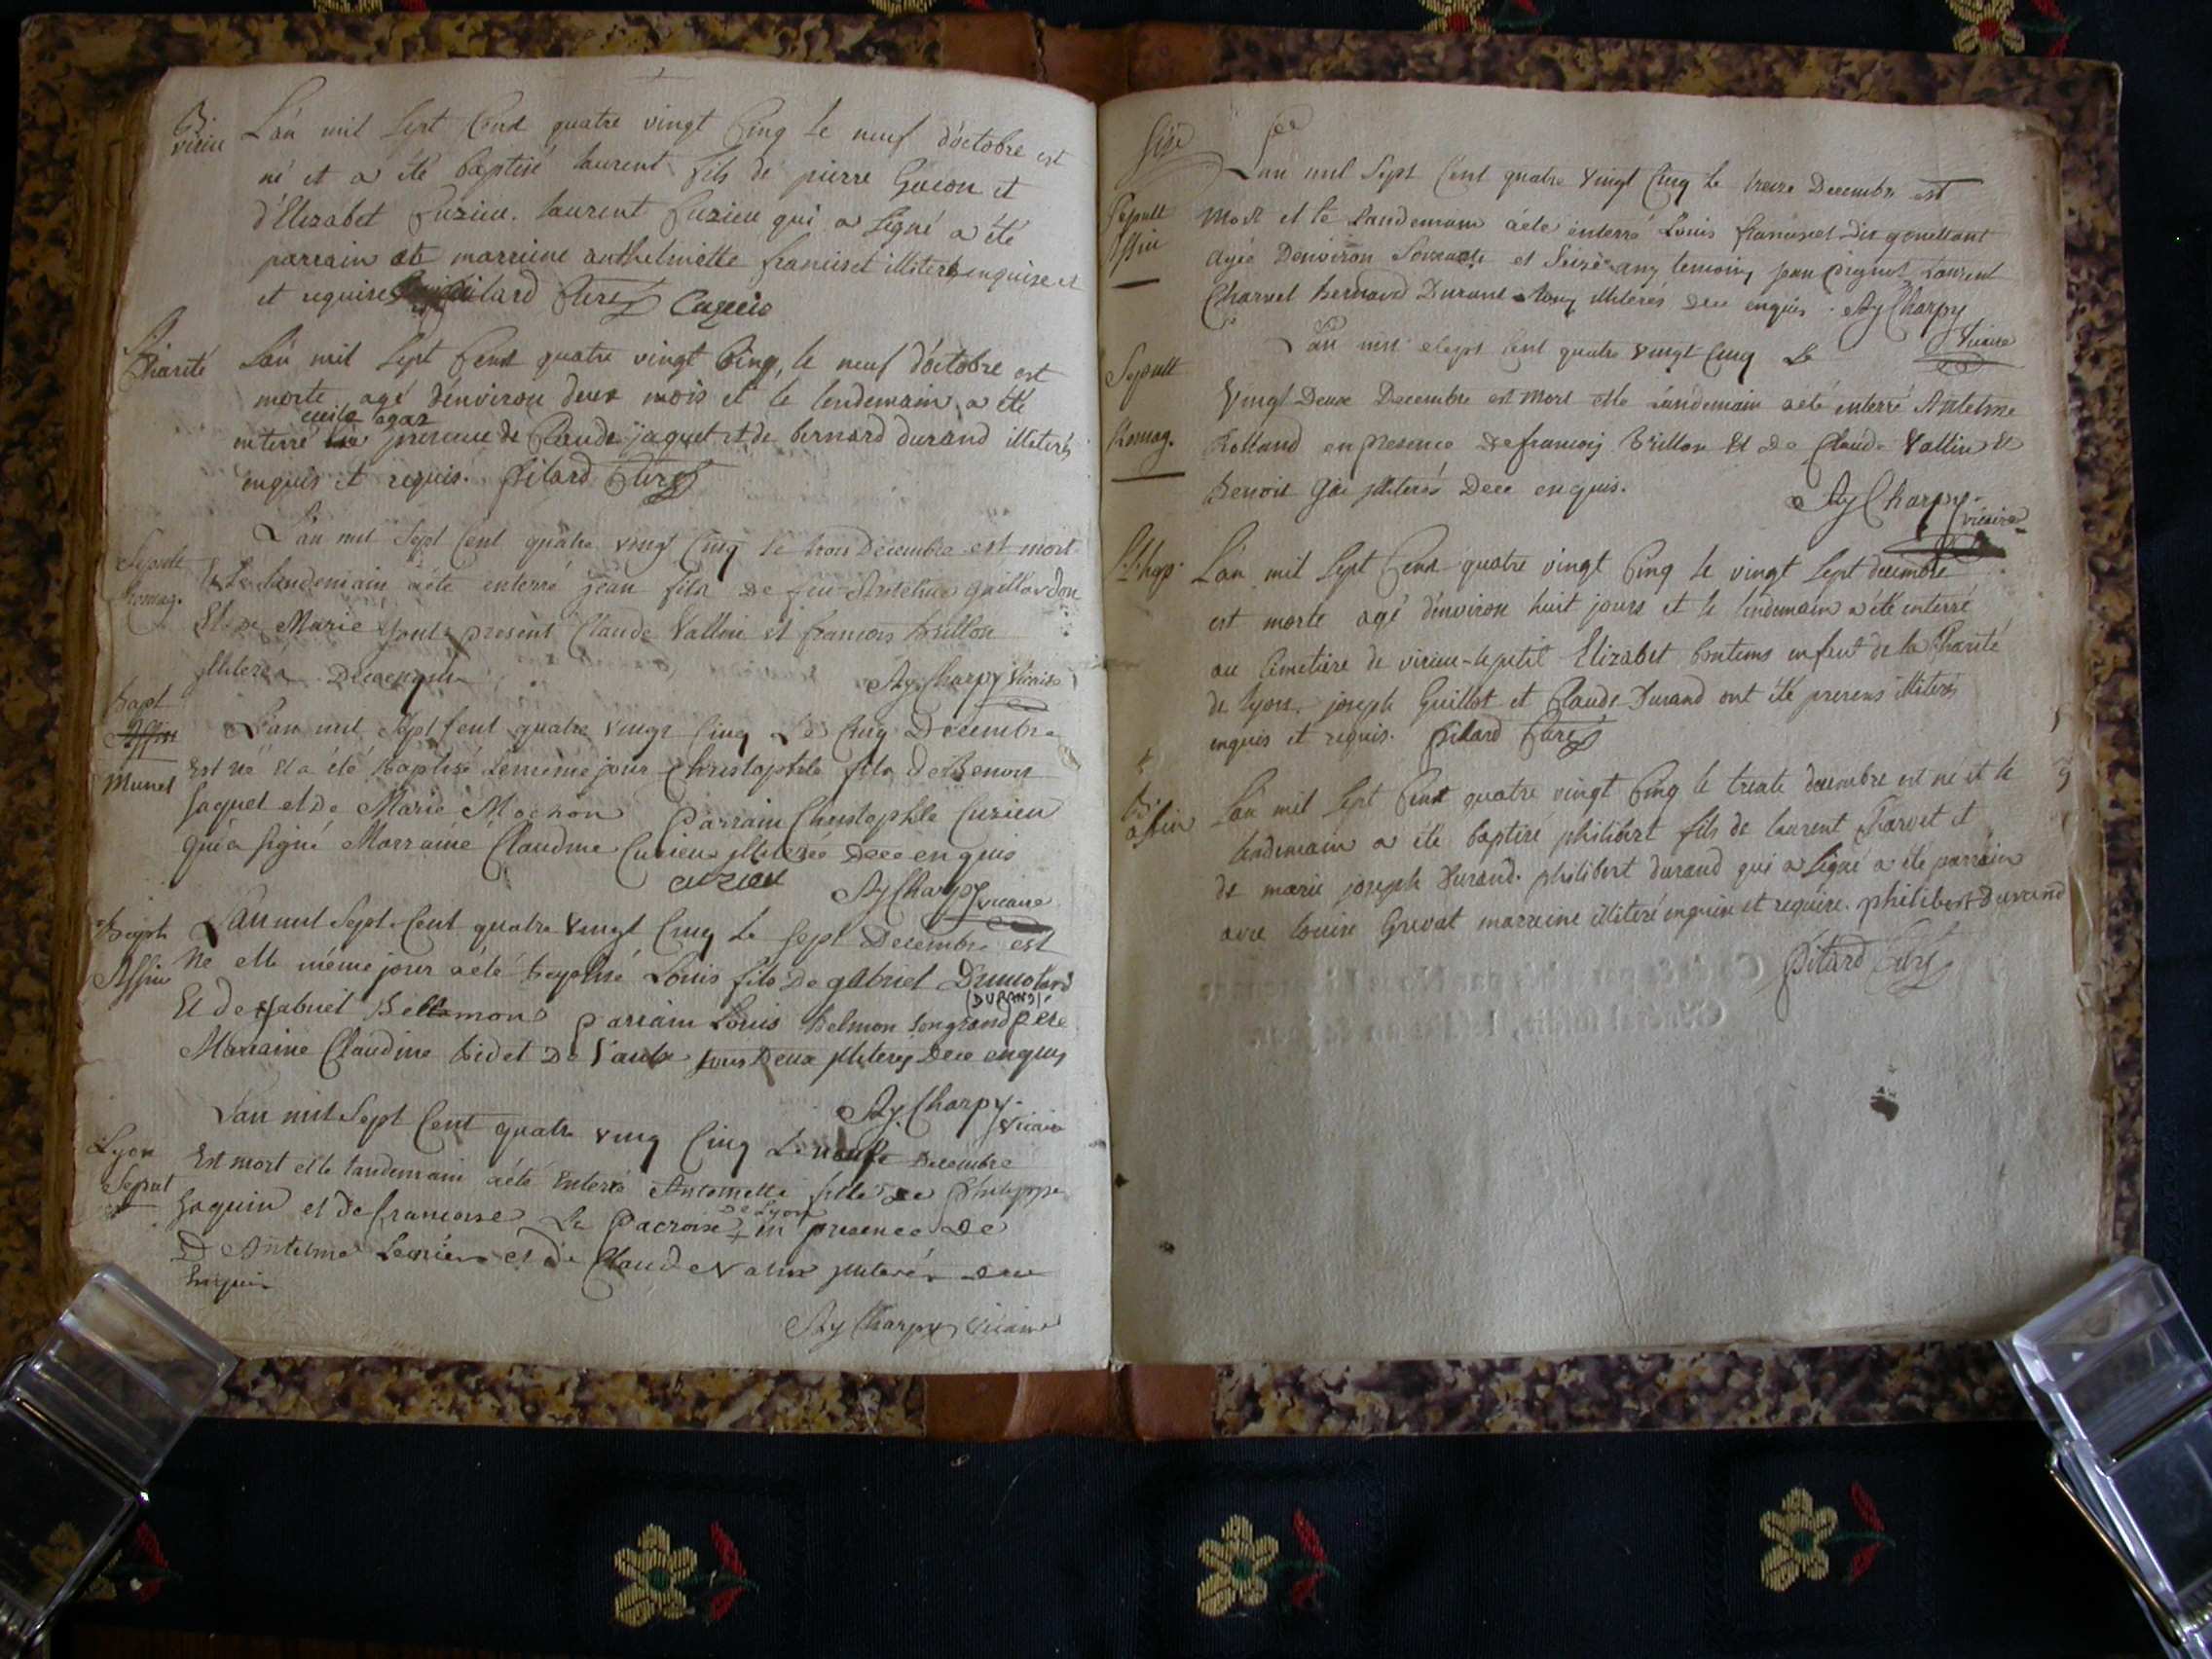 B. virieu
L'an mil sept Cent quatre vingt Cinq le neuf d'octobre est
né et a été baptisé laurent fils de pierre Guion et
d'Elizabet Cuzieu. laurent Cuzieu qui a signé a été
parrain et marreine anthelmette franciset illiteré enquise et
et requise Pitard Curé Cuzieu
Charité
L'an mil sept Cent quatre vingt Cinq, le neuf d'octobre est
morte agé d'environ deux mois et le lendemain a été
enterré en presence de Claude jaquet et de bernard durand illiterés
enquis et requis. Pitard Curé
Sepult
Romag.
L'an mil sept Cent quatre vingt Cinq le trois Decembre est mort
Et le landemain aété enterré jean fils De feu Antelme gaillardon
Et De Marie present Claude Vallin et francois brillon
illiteres Dece enquis
Ay Charpy Vicaire
bapt
Affin
Munet
L'an mil sept Cent quatre vingt Cinq Le Cinq Decembre
Est né Et a été baptisé Le meme jour Christophle fils de Benoit
jaquet et De Marie Mochon Parrain Christophle Cuzieu
qui a signé Marraine Claudine Cuzieu illiterée Dece enquis
cuzieu Ay Charpy vicaire
Bapt
Affin
L'an mil sept Cent quatre Vingt Cinq Le sept Decembre est
Né et le même jour aété baptisé Louis fils De gabriel Dumolard
(DURAND)
Et de Belmont parrain Louis Belmon son grand pere
Marraine Claudine bidet De Vaux tous Deux illiterés Dece enquis
Ay Charpy
Vicaire
Lyon
Sepult
L'an mil Sept Cent quatre ving Cinq Le neuf Decembre
Est mort et le landemain aété Enterré Antoinette fille De Philippe
jaquin et de francoise La Pacroise De Lyon + en presence De
D Antelme et De Claude Valin illiterés Dece
Enquis
Ay Charpy Vicaire
L'an mil Sept Cent quatre Vingt Cinq Le treize Decembre est
Sepult
Affin
Mort et le Landemain aété enterré Louis franciset dit
Agée Denviron Soixante et Seize ans temoins jean Laurent
Charvet bernard Durand tous illiterés Dece enquis. Ay Charpy
Vicaire
Sepult
Romag.
L'an mil sept Cent quatre Vingt Cinq Le
Vingt Deux Decembre est Mort et le Landemain aété enterré Antelme
Rolland en presence De francois brillon Et De Claude Vallin Et
benoit illiterés Dece enquis.
Ay Charpy
vicaire
L'an mil sept Cent quatre vingt Cinq le vingt sept decembre
est morte agé d'environ huit jours et le lendemain a été enterré
au Cimetiere de virieu-le petit Elizabet bontems enfant de la Charité
de lyon. joseph Guillot et Claude Durand ont été presens illiterés
enquis et requis. Pitard Curé
B.
affin
L'an mil sept Cent quatre vingt Cinq le trente decembre est né et le
lendemain a été baptisé philibert fils de laurent Charvet et
de marie joseph Durand. philibert durand qui a signé a été parrain
avec louise Grivat marreine illiteré enquise et requise. philibert Durand
Pitard Curé